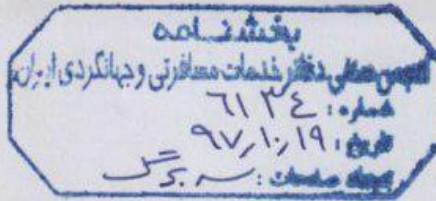 بخشنامه
انجمن صنفی دفاتر خدمات مسافرتی و جهانگردی ایران
شماره : ۶۱۳۴
تاریخ : ۹۷/۱۰/۱۹
تعداد صفحات : سه برگ